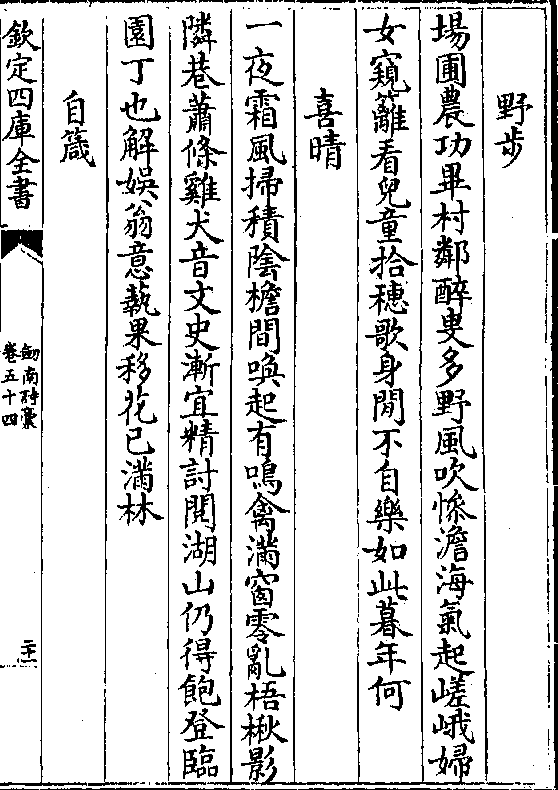 野步
場圃農功畢村鄰醉叟多野風吹慘澹海氣起嵯峨婦
女窺籬看兒童拾穗歌身閒不自樂如此暮年何
喜晴
一夜霜風掃積陰檐間喚起有鳴禽滿窗零亂梧楸影
隣巷蕭條雞犬音文史漸宜精討閱湖山仍得飽登臨
園丁也解娯翁意蓺果移花已滿林
自箴
欽定四庫全書
劒南詩槀
卷五十四
二十一